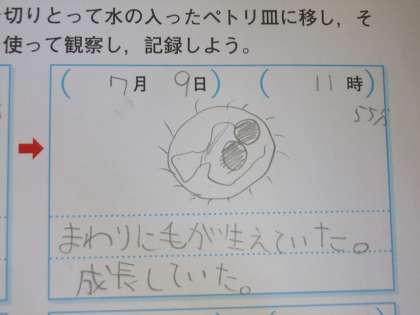 切りとって水の入ったペトリ皿に移し，そ
使って観察し，記録しよう。
(7月 9日) (11時)
55分
まわりにもが生えていた。
成長していた。